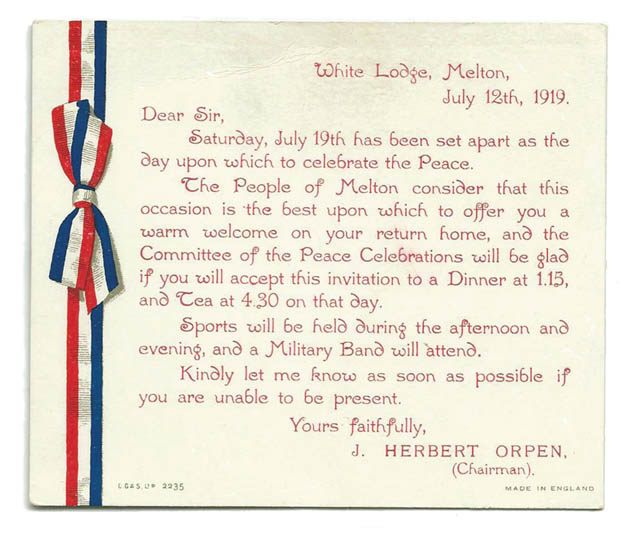 White Lodge, Melton,
July 12th, 1919.
Dear Sir,
Saturday, July 19th has been set apart as the
day upon which to celebrate the Peace.
The People of Melton consider that this
occasion is the best upon which to offer you a
warm welcome on your return home, and the
Committee of the Peace Celebrations will be glad
if you will accept this invitation to a Dinner at 1.15,
and Tea at 4.30 on that day.
Sports will be held during the afternoon and
evening, and a Military Band will attend.
Kindly let me know as soon as possible if
you are unable to be present.
Yours faithfully,
J. HERBERT ORPEN,
(Chairman).
2235
MADE IN ENGLAND